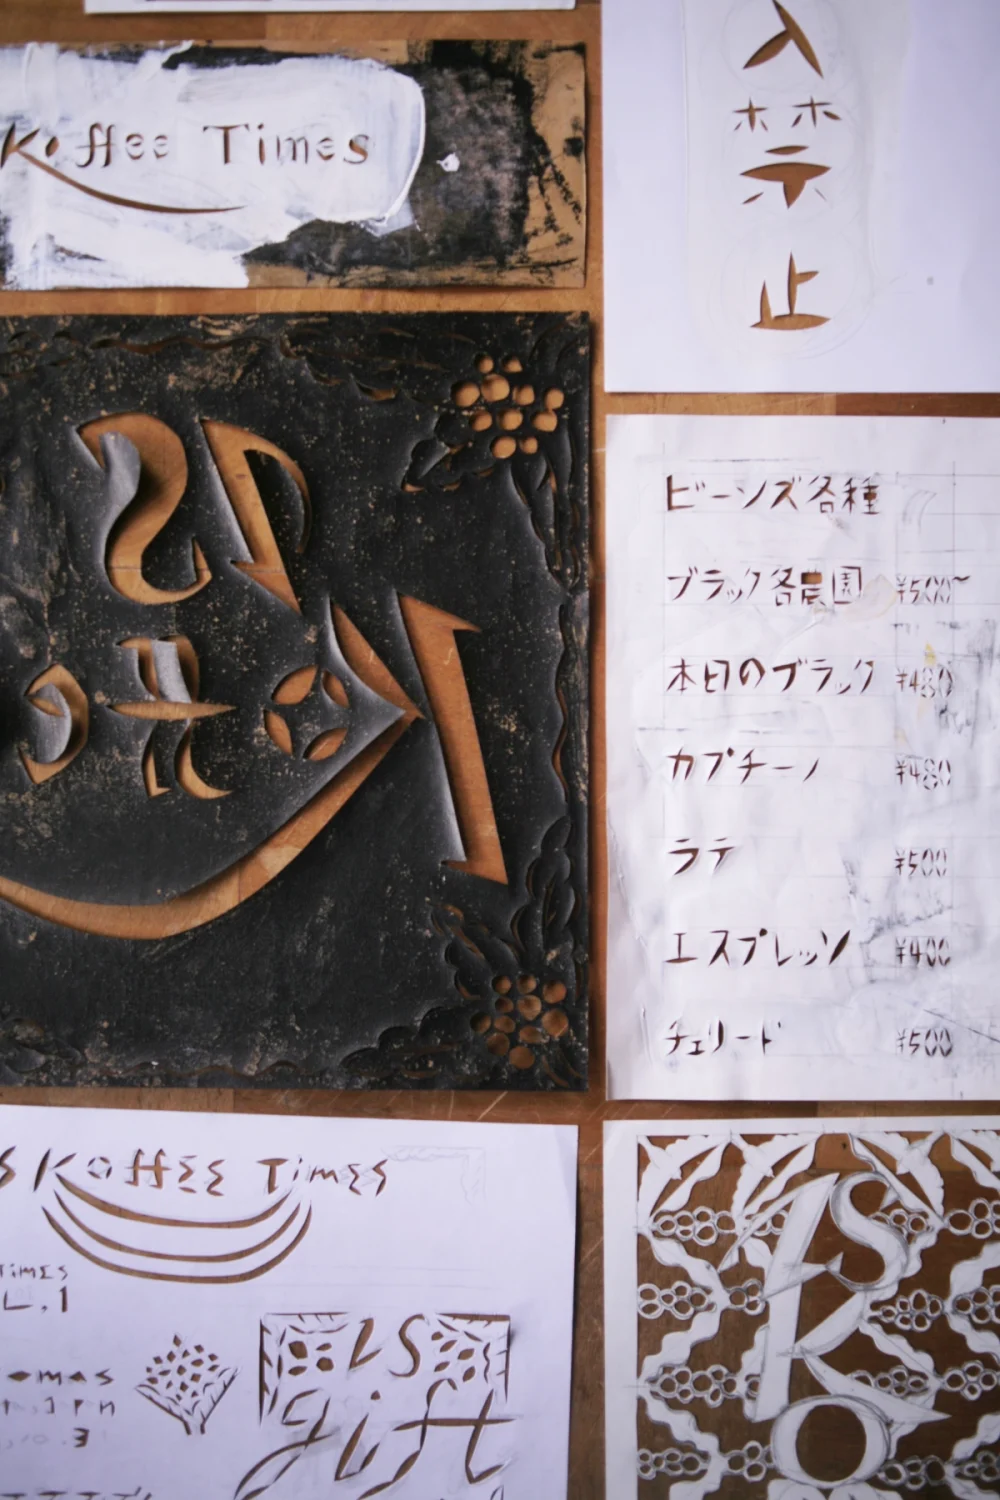 Koffee Times
入
禁
止
ビーンズ各種
ブラック各農園 ¥500~
本日のブラック ¥480
カプチーノ ¥480
ラテ ¥500
エスプレッソ ¥400
チェリード ¥500
S Koffee Times
TIMES
L.1
omas
3
IS
gift
IS
K
O